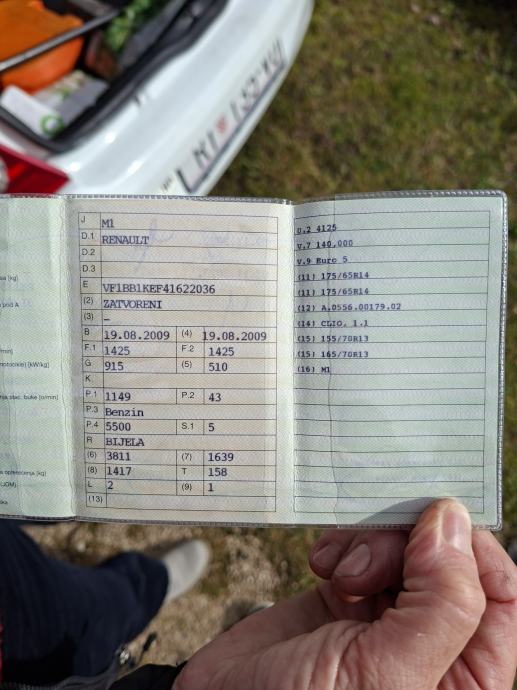 J M1
D.1 RENAULT
D.2
D.3
E VF1BB1KEF41622036
(2) ZATVORENI
(3) –
B 19.08.2009 (4) 19.08.2009
F.1 1425 F.2 1425
G 915 (5) 510
K
P.1 1149 P.2 43
P.3 Benzin
P.4 5500 S.1 5
R BIJELA
(6) 3811 (7) 1639
(8) 1417 T 158
L 2 (9) 1
(13)
U.2 4125
V.7 140,000
V.9 Euro 5
(11) 175/65R14
(11) 175/65R14
(12) A.0556.00179.02
(14) CLIO, 1.1
(15) 155/70R13
(15) 165/70R13
(16) M1